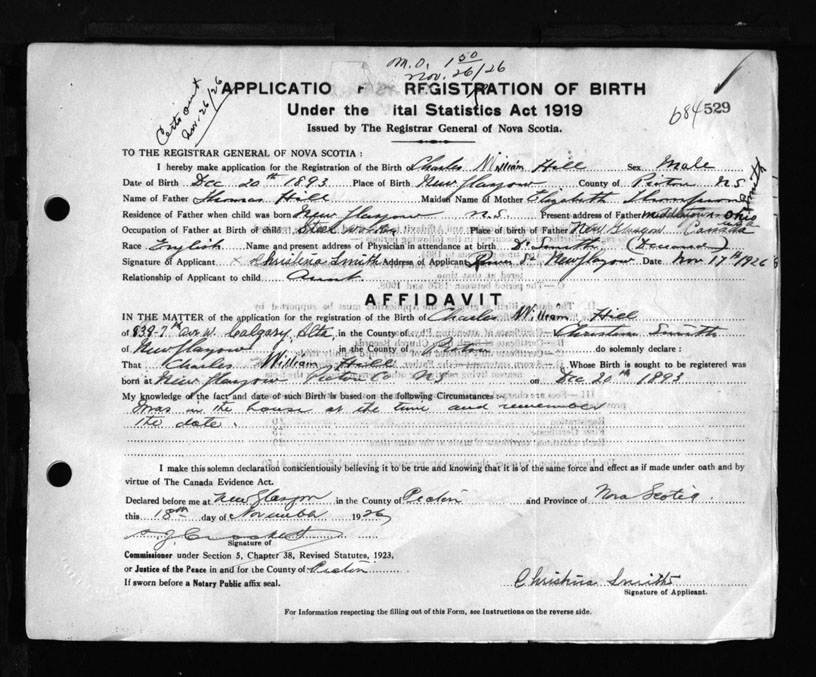 M.O. 1 50
Nov. 26/26
Certs out
Nov. 26/26
APPLICATIO REGISTRATION OF BIRTH
Under the ital Statistics Act 1919
684 529
Issued by The Registrar General of Nova Scotia.
TO THE REGISTRAR GENERAL OF NOVA SCOTIA :
I hereby make application for the Registration of the Birth Charles William Hill Sex Male
Date of Birth Dec 20th 1893 Place of Birth New Glasgow County of Pictou N.S.
Name of Father Thomas Hill Maiden Name of Mother Elizabeth
Residence of Father when child was born New Glasgow N.S. Present address of Father Middletown Ohio
Occupation of Father at Birth of child Steel worker Place of birth of Father New Glasgow Canada
Race English Name and present address of Physician in attendance at birth Dr (Deceased)
Signature of Applicant x Christina Smith Address of Applicant St. New Glasgow Date Nov 17th 1926
Relationship of Applicant to child Aunt
AFFIDAVIT
IN THE MATTER of the application for the registration of the Birth of Charles William Hill
of 839-7th Ave W. Calgary, Alta, in the County of Christina Smith
of New Glasgow in the County of Pictou do solemnly declare :
That Charles William Hill Whose Birth is sought to be registered was
born at New Glasgow Pictou Co N.S on Dec 20th 1893
My knowledge of the fact and date of such Birth is based on the following Circumstances :-
I was in the house at the time and remember
the date.
I make this solemn declaration conscientiously believing it to be true and knowing that it is of the same force and effect as if made under oath and by
virtue of The Canada Evidence Act.
Declared before me at New Glasgow in the County of Pictou and Province of Nova Scotia.
this 18th day of November 1926
Signature of
Commissioner under Section 5, Chapter 38, Revised Statutes, 1923,
or Justice of the Peace in and for the County of Pictou
If sworn before a Notary Public affix seal.
Christina Smith
Signature of Applicant.
For Information respecting the filling out of this Form, see Instructions on the reverse side.